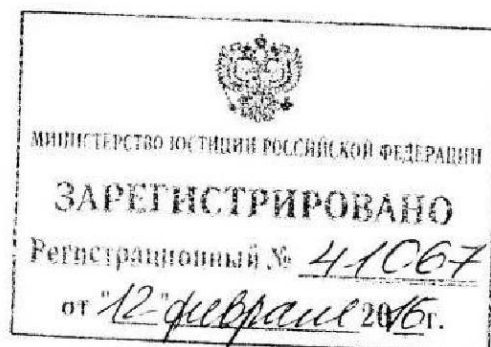 МИНИСТЕРСТВО ЮСТИЦИИ РОССИЙСКОЙ ФЕДЕРАЦИИ
ЗАРЕГИСТРИРОВАНО
Регистрационный № 41067
от "12" февраля 2016г.